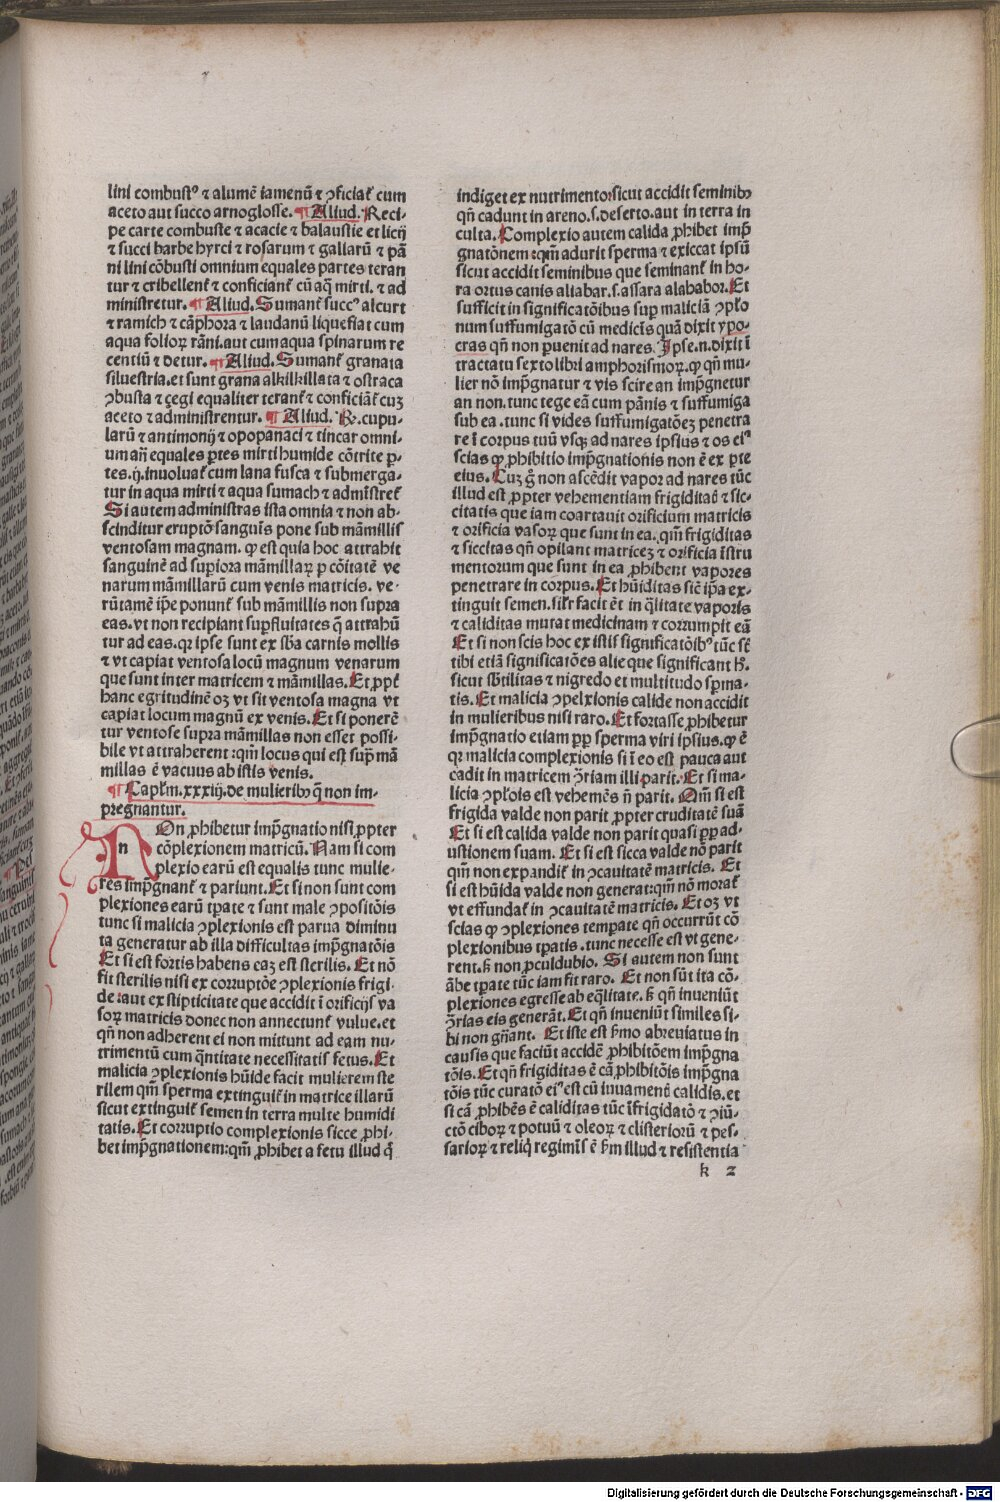 lini combustꝰ ⁊ alumē iamenū ⁊ ꝯficiat̄ cum
aceto aut succo arnoglosse. ¶ Aliud. Reci-
pe carte combuste ⁊ acacie ⁊ balaustie et licij
⁊ succi barbe hyrci ⁊ rosarum ⁊ gallarū ⁊ pā
ni lini cōbusti omnium equales partes teran
tur ⁊ cribellent̄ ⁊ conficiant̄ cū aq̄ mirti. ⁊ ad
ministretur. ¶ Aliud. Sumant̄ succꝰ alcurt
⁊ ramich ⁊ cāphora ⁊ laudanū liquefiat cum
aqua folioꝝ rāni. aut cum aqua spinarum re
centiū ⁊ detur. ¶ Aliud. Sumant̄ granata
siluestria. et sunt grana alkilkillata ⁊ ostraca
ꝯbusta ⁊ cegi equaliter terant̄ ⁊ conficiāt̄ cuꝫ
aceto ⁊ administrentur. ¶ Aliud. ℞. cupu-
larū ⁊ antimonij ⁊ opopanaci ⁊ tincar omni-
um añ equales ꝑtes mirti humide cōtrite ꝑ-
tes .ij. inuoluat̄ cum lana fusca ⁊ submerga-
tur in aqua mirti ⁊ aqua sumach ⁊ admīstret̄
Si autem administras ista omnia ⁊ non ab-
scinditur eruptō sanguīs pone sub māmillis
ventosam magnam. ꝙ est quia hoc attrahit
sanguinē ad suꝑiora māmillaꝝ ꝑ cōitatē ve
narum māmillarū cum venis matricis. ve-
rūtamē ip̄e ponunt̄ sub māmillis non supra
eas. vt non recipiant suꝑfluitates q̄ attrahū
tur ad eas. qꝛ ipse sunt ex sb̄a carnis mollis
⁊ vt capiat ventosa locū magnum venarum
que sunt inter matricem ⁊ māmillas. Et ꝓpt̄
hanc egritudinē oꝫ vt sit ventosa magna vt
capiat locum magnū ex venis. Et si ponerē
tur ventose supra māmillas non esset possi-
bile vt attraherent: qm̄ locus qui est suꝑ mā
millas ē vacuus ab istis venis.
¶ Capl̄m. xxxiij. de mulieribꝰ q̄ non im-
pregnantur.
NOn ꝓhibetur imp̄gnatio nisi ꝓpter
cōplexionem matricū. Nam si com
plexio earū est equalis tunc mulie-
res imp̄gnant̄ ⁊ pariunt. Et si non sunt com
plexiones earū tꝑate ⁊ sunt male ꝯpositōis
tunc si malicia ꝯplexionis est parua diminu
ta generatur ab illa difficultas imp̄gnatōis
Et si est fortis habens caꝫ est sterilis. Et nō
fit sterilis nisi ex corruptōe ꝯplexionis frigi-
de: aut ex stipticitate que accidit ī orificijs va
soꝝ matricis donec non annectunt̄ vulue. et
qñ non adherent ei non mittunt ad eam nu-
trimentū cum q̄ntitate necessitatis fetus. Et
malicia ꝯplexionis hūide facit mulierem ste
rilem qm̄ sperma extinguit̄ in matrice illarū
sicut extinguit̄ semen in terra multe humidi
tatis. Et corruptio complexionis sicce ꝓhi-
bet imp̄gnationem: qm̄ ꝓhibet a fetu illud q̄
indiget ex nutrimento: sicut accidit seminibꝰ
qñ cadunt in areno. s. deserto. aut in terra in
culta. Complexio autem calida ꝓhibet imp̄
gnatōnem: qm̄ adurit sperma ⁊ exiccat ipsū
sicut accidit seminibus que seminant̄ in ho-
ra ortus canis aliabar. s. assara alahabor. Et
sufficit in significatōibus suꝑ maliciā ꝯplo̅
num suffumigatō cū medicīs quā dixit ypo-
cras qñ non ꝑuenit ad nares. Ipse. n. dixit ī
tractatu sexto libri amphorismoꝝ. ꝙ qñ mu-
lier nō imp̄gnatur ⁊ vis scire an imp̄gnetur
an non. tunc tege eā cum pānis ⁊ suffumiga
sub ea. tunc si vides suffumigatōeꝫ penetra
re ī corpus tuū vsqꝫ ad nares ipsius ⁊ os eiꝰ
scias ꝙ ꝓhibitio imp̄gnationis non ē ex ꝑte
eius. Cuꝫ g̊ non ascēdit vapor ad nares tūc
illud est ꝓpter vehementiam frigiditatē ⁊ sic-
citatis que iam coartauit orificium matricis
⁊ orificia vasoꝝ que sunt in ea. qm̄ frigiditas
⁊ siccitas qñ opilant matriceꝫ ⁊ orificia īstru
mentorum que sunt in ea ꝓhibent vapores
penetrare in corpus. Et hūiditas sic̄ ip̄a ex-
tinguit semen. sil̄r facit ēt in q̄litate vaporis
⁊ caliditas mutat medicinam ⁊ corrumpit eā
Et si non scis hoc ex istis significatōibꝰ tūc st̄
tibi etiā significatōes alie que significant h̄.
sicut sb̄tilitas ⁊ nigredo et multitudo sp̄ma-
tis. Et malicia ꝯpelxionis calide non accidit
in mulieribus nisi raro. Et fortasse ꝓhibetur
imp̄gnatio etiam ꝓp̄ sperma viri ipsius. ꝙ ē
qꝛ malicia complexionis si ī eo est pauca aut
cadit in matricem ꝯ̄riam illi parit. Et si ma-
licia ꝯplo̅is est vehemēs n̄ parit. Qm̄ si est
frigida valde non parit ꝓpter cruditatē suā
Et si est calida valde non parit quasi ꝓp̄ ad-
ustionem suam. Et si est sicca valde nō parit
qm̄ non expandit̄ in ꝯcauitatē matricis. Et
si est hūida valde non generat: qm̄ nō morat̄
vt effundat̄ in ꝯcauitatē matricis. Et oꝫ vt
scias ꝙ ꝯplexiones temꝑate qñ occurrūt cō
plexionibus tꝑatis. tunc necesse est vt gene-
rent. s̄ non ꝓculdubio. Si autem non sunt
ābe tꝑate tūc iam fit raro. Et non sūt ita cō-
plexiones egresse ab eq̄litate. s̄ qñ inueniūt
ꝯ̄rias eis generāt. Et qñ inueniūt similes si-
bi non gn̄ant. Et iste est s̄mo abreuiatus in
causis que faciūt accidē ꝓhibitōem imp̄gna
tōis. Et qñ frigiditas ē cā ꝓhibitōis imp̄gna
tōis tūc curatō eiꝰ est cū iuuament̄ calidis. et
si cā ꝓhibēs ē caliditas tūc īfrigidatō ⁊ ꝯiū-
ctō ciboꝝ ⁊ potuū ⁊ oleoꝝ ⁊ clisteriorū ⁊ pes-
sarioꝝ ⁊ reliq̄ regimīs ē s̄m illud ⁊ resistentia
k 2
Digitalisierung gefördert durch die Deutsche Forschungsgemeinschaft - DFG